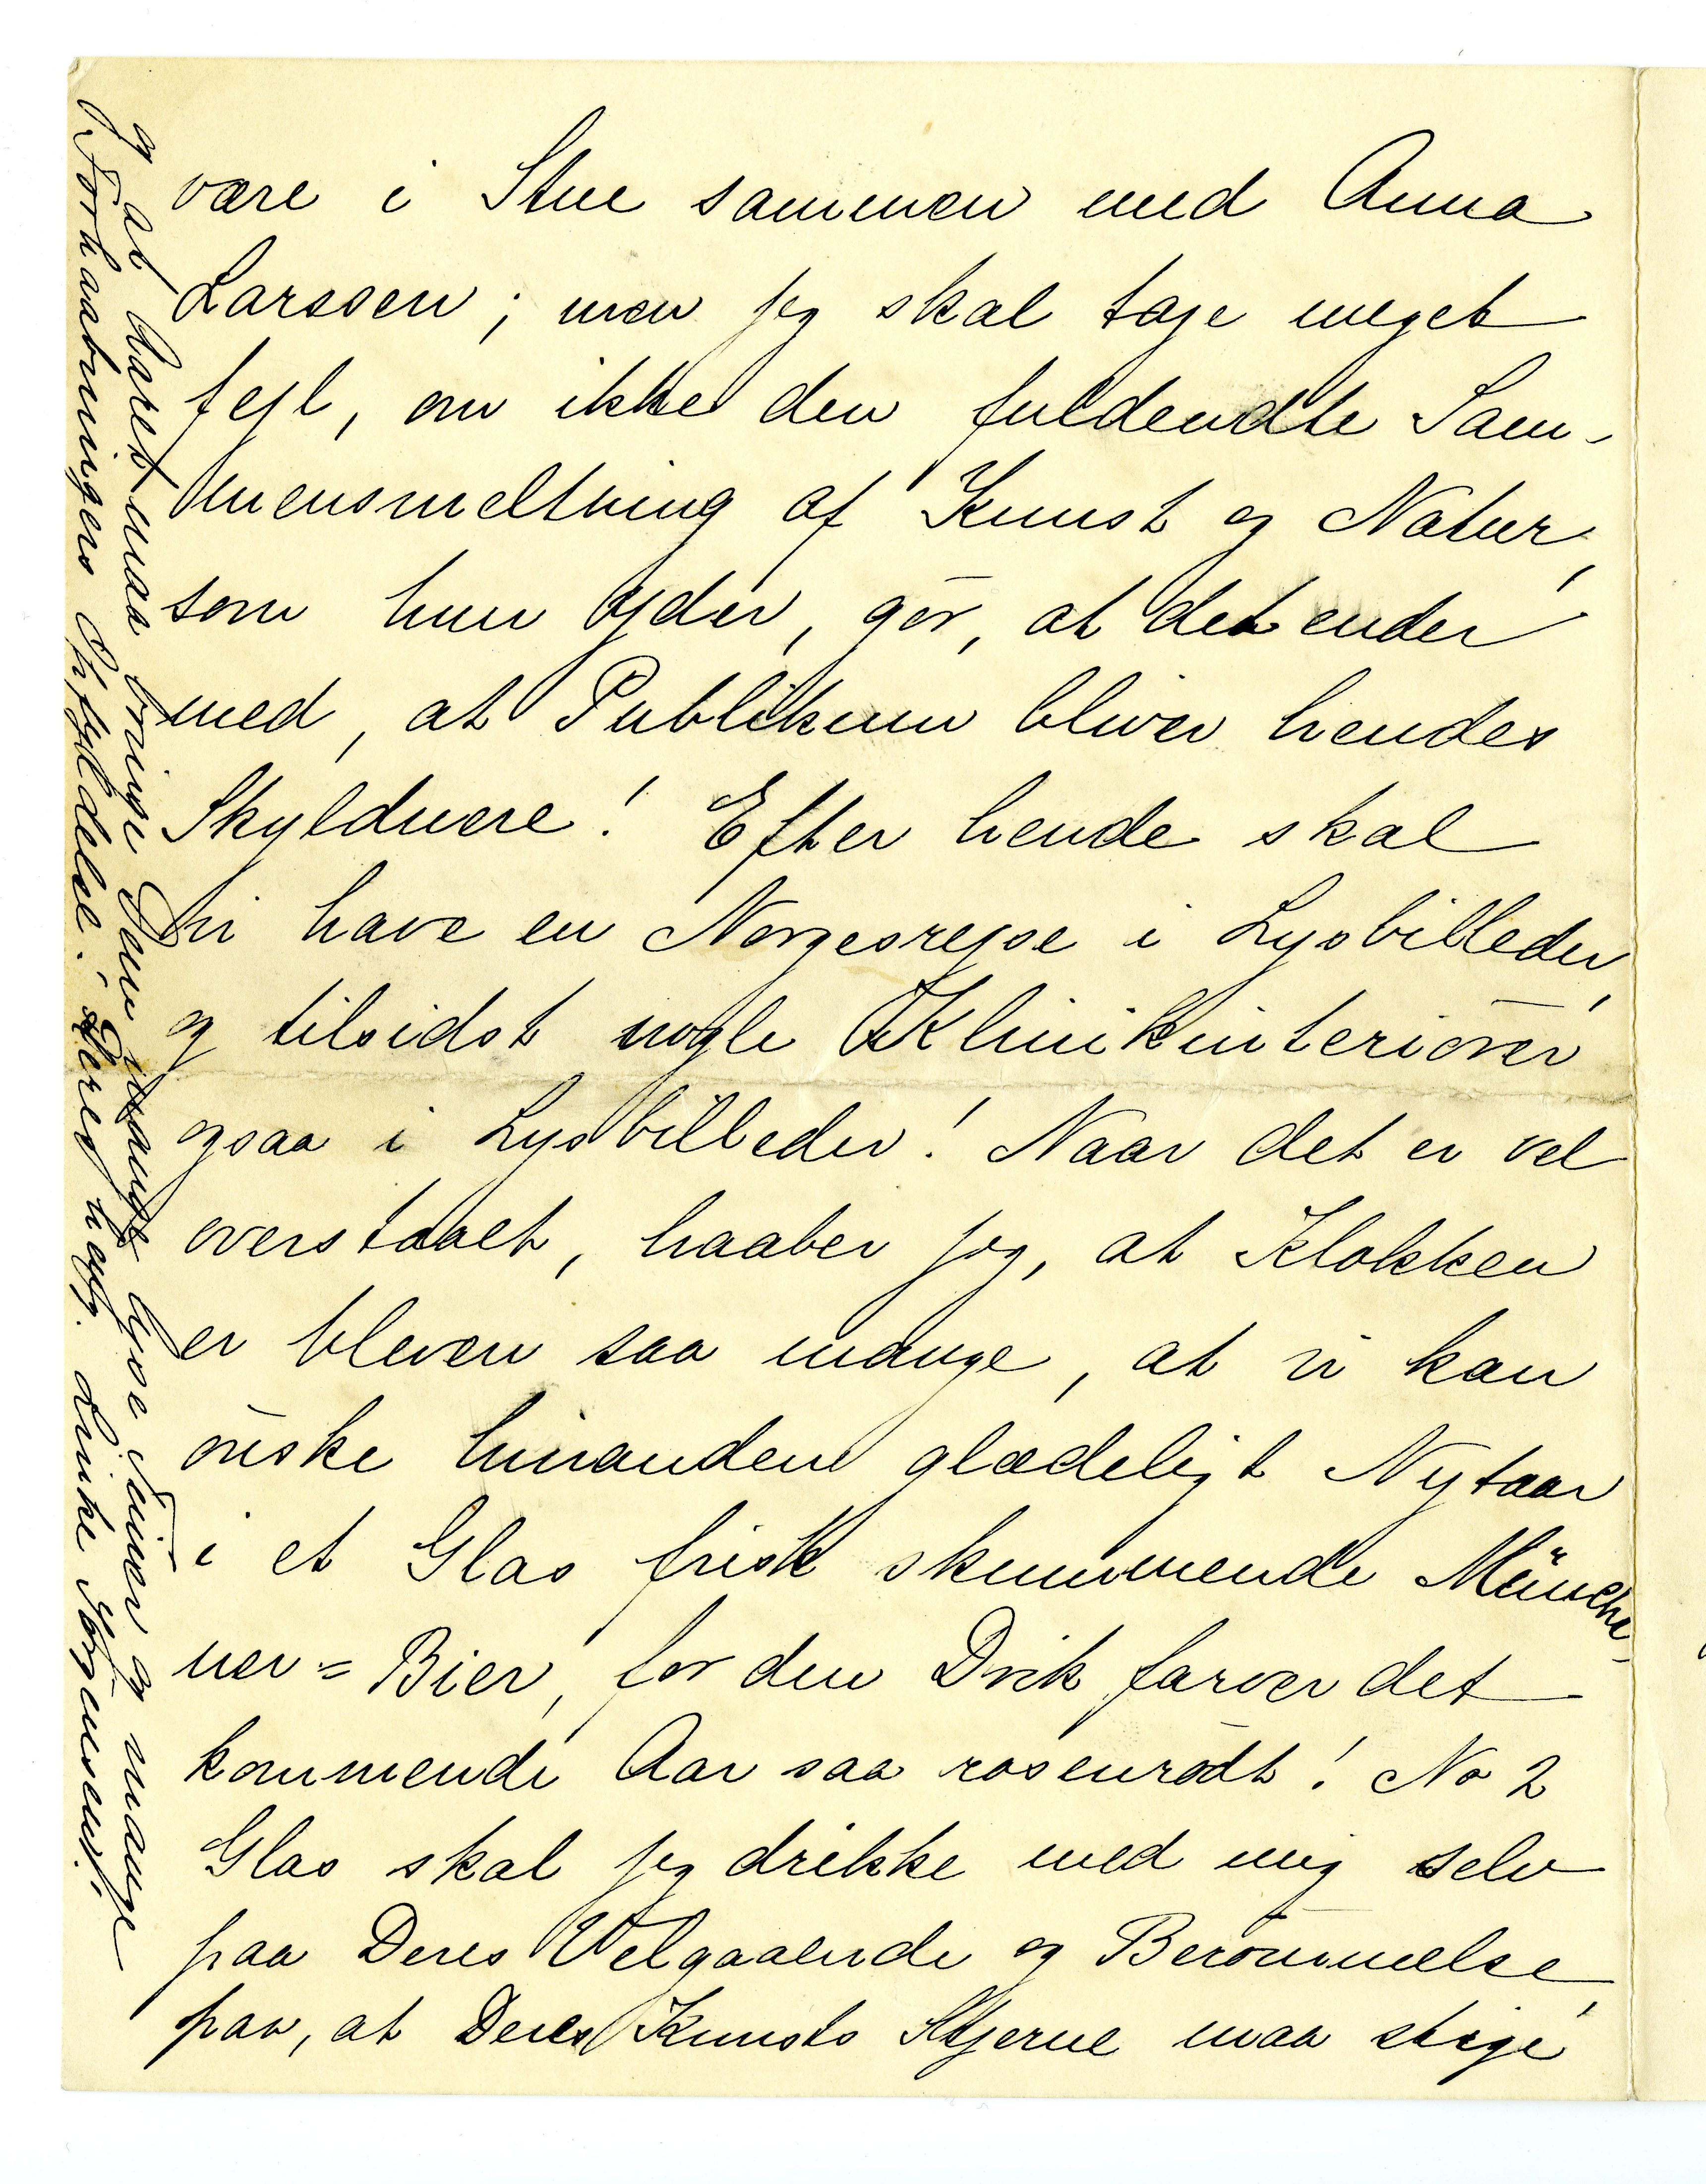 være i Stue sammen med Anna
Larssen; men jeg skal tage meget
fejl, om ikke den fuldendte Sam-
mensmeltning af Kunst og Natur,
som hun yder, gør, at det ender
med, at Publikum bliver hendes
Skyldnere! Efter hende skal
vi have en Norgesrejse i Lysbilleder,
og tilsidst nogle Klinikinteriører
ogsaa i Lysbilleder! Naar det er vel
overstaaet, haaber jeg, at Klokken
er bleven saa mange, at vi kan
ønske hinanden glædeligt Nytaar
i et Glas frisk skummende Münche-
ner=Bier, for den Drik farver det
kommende Aar saa rosenrødt! No 2
Glas skal jeg drikke med mig selv
paa Deres Velgaaende og Berømmelse,
paa, at Deres Kunsts Stjerne maa stige
og at Aaret maa bringe Dem mange lyse Timer og mange
Forhaabningers Opfyldelse! Deres hengivne